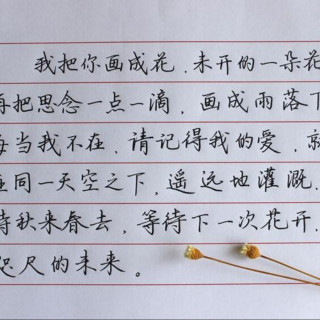 我把你画成花.未开的一朵花
再把思念一点一滴,画成雨落下
每当我不在.请记得我的爱,就
在同一天空之下,遥远地灌溉.
待秋来春去,等待下一次花开.
咫尺的未来。